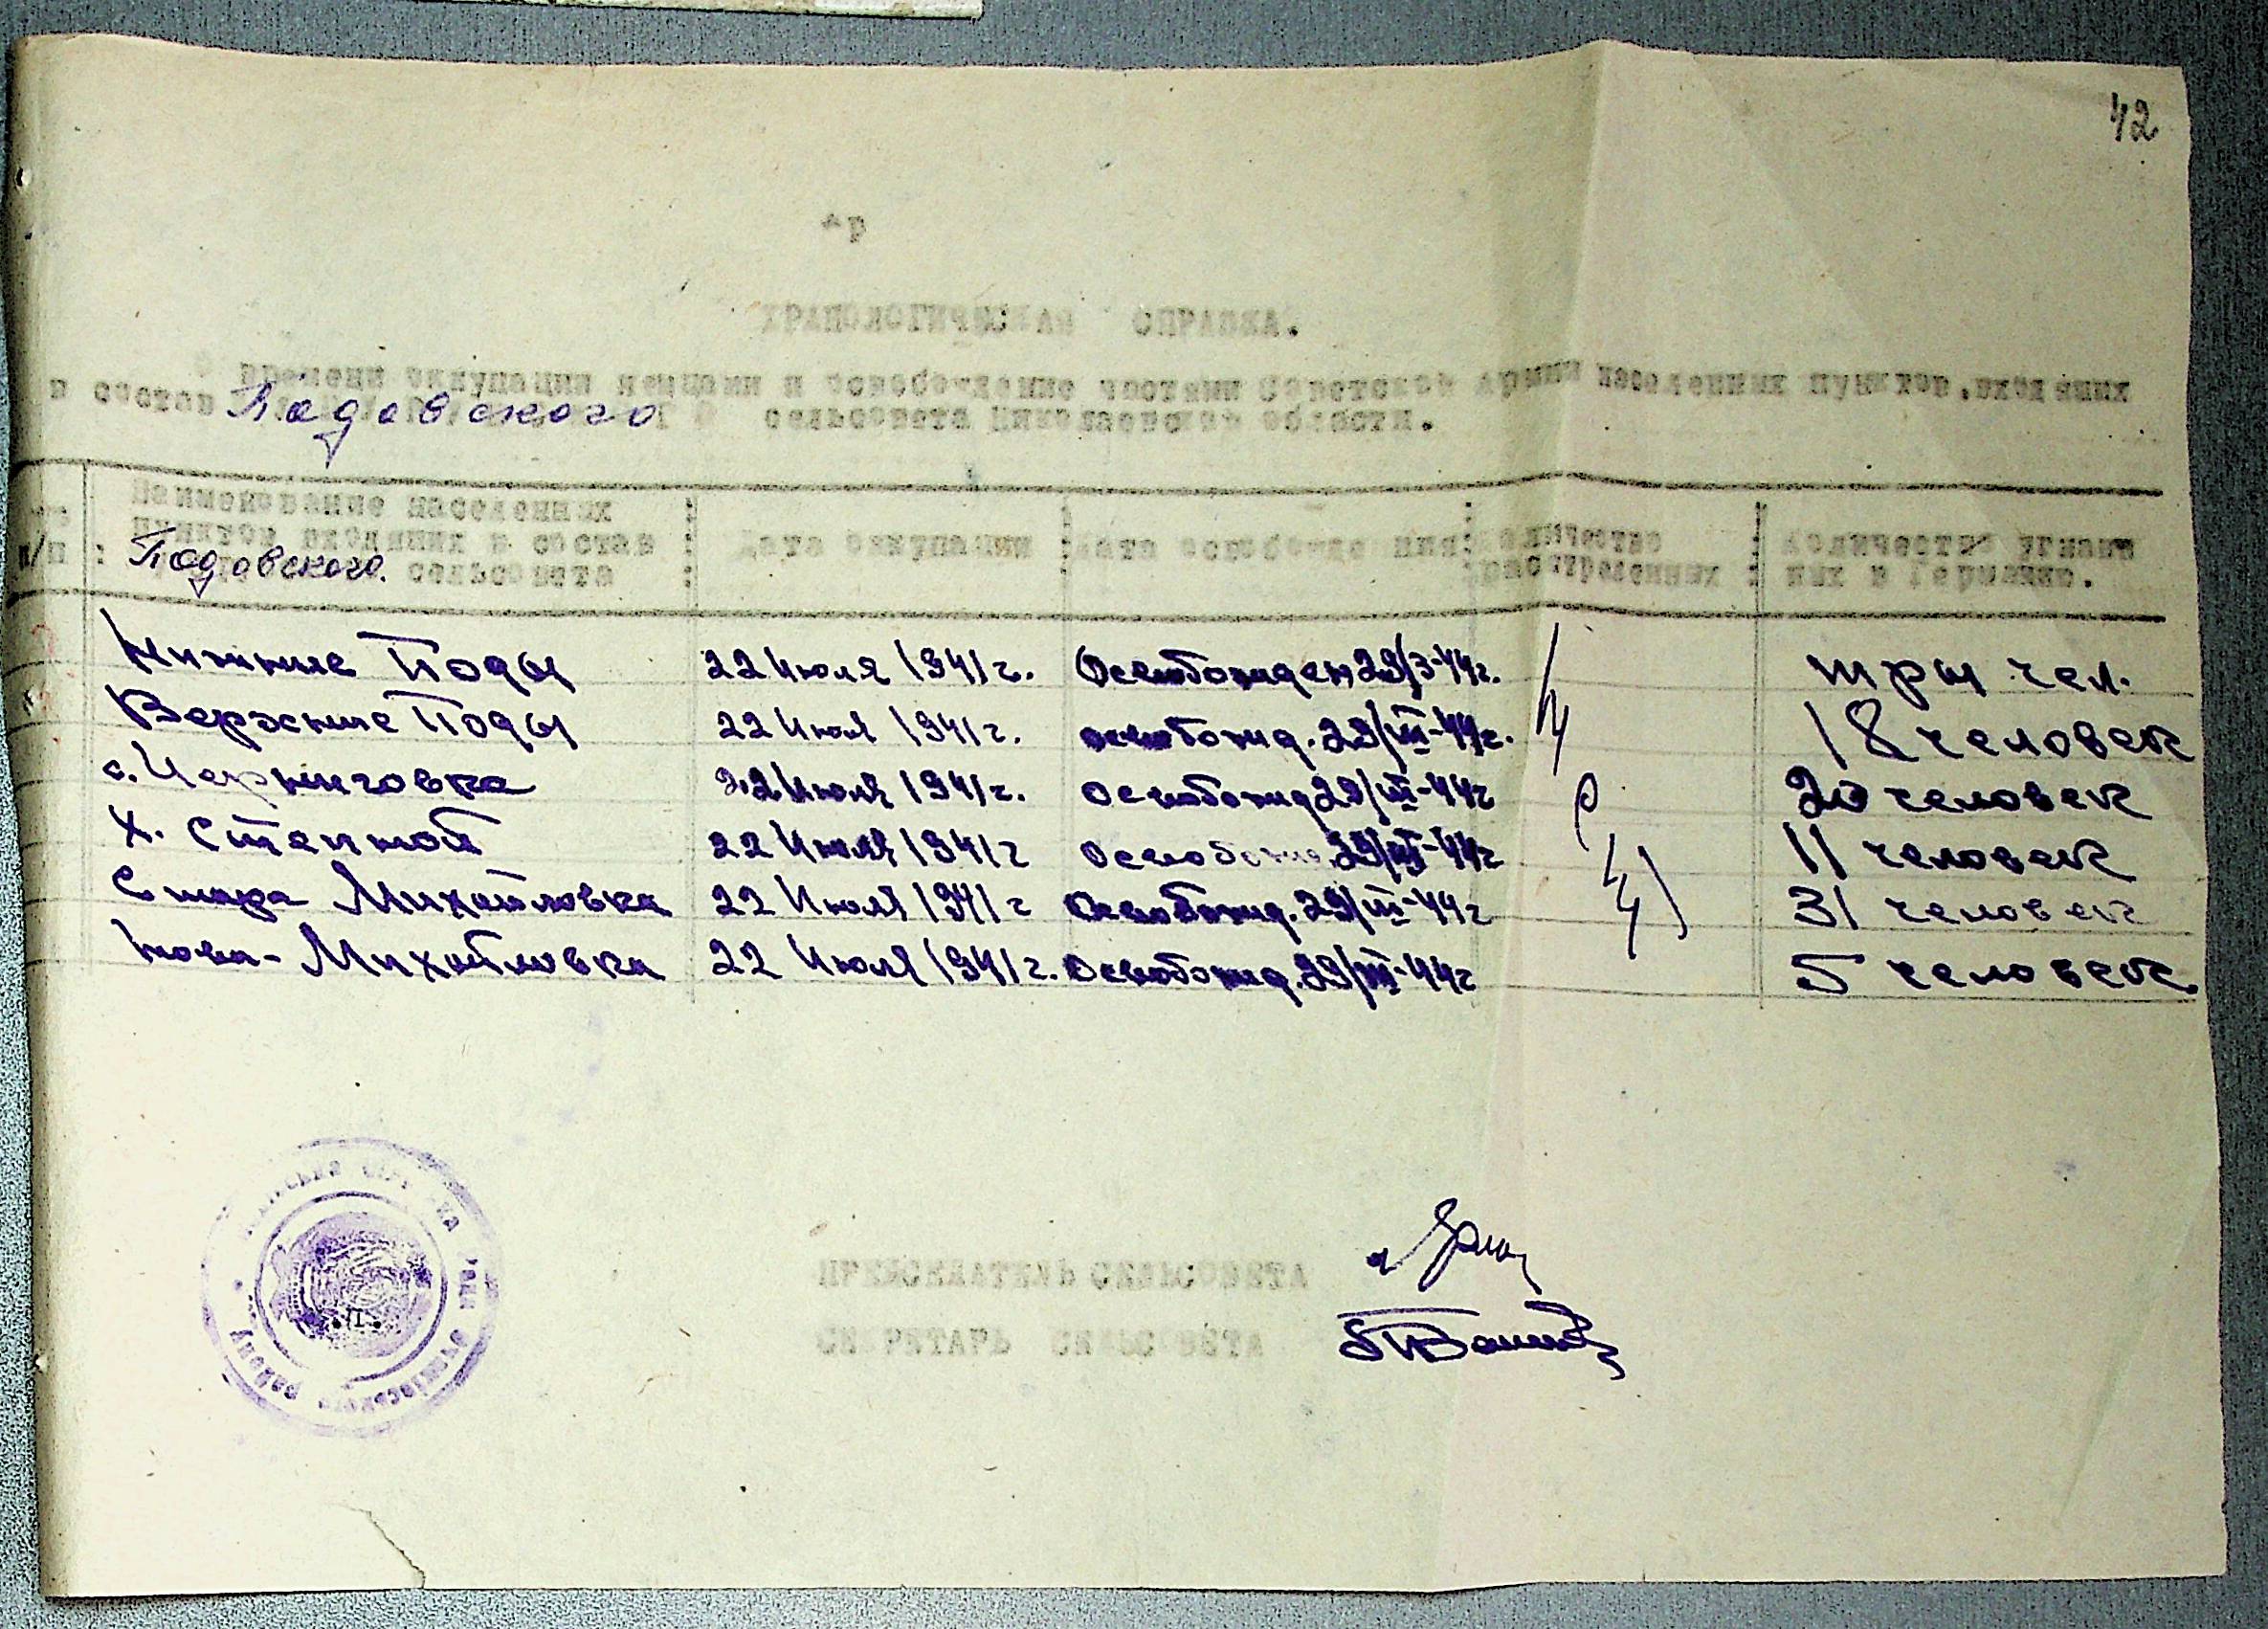 42
ХРАНОЛОГИЧЕСКАЯ СПРАВКА.
О времени оккупации немцами и освобождение частями Советской Армии населенных пунктов, входящих
в состав Подовского сельсовета Николаевской области.
п/п : Наименование населенных пунктов входящих в состав Подовского сельсовета : Дата оккупации : Дата освобожде ния : Количество расстреленных : Количество угнаных в Германию.
Нижние Поды 22 Июля 1941 г. Освобожден 29/3-44г. три чел.
Верхние Поды 22 Июля 1941 г. освобожд. 29/III-44г. 18 человек
с. Черниговка 22 Июля 1941 г. Освобожд 29/III-44г 20 человек
Х. Степной 22 Июля 1941 г Освобожд 29/III-44г 11 человек
Стара Михайловка 22 Июля 1941 г Освобожд. 29/III-44г 31 человек
Нова-Михайловка 22 Июля 1941 г. Освобожд. 29/III-44г 5 человек
ПРЕДСЕДАТЕЛЬ СЕЛЬСОВЕТА
СЕКРЕТАРЬ СЕЛЬСОВЕТА